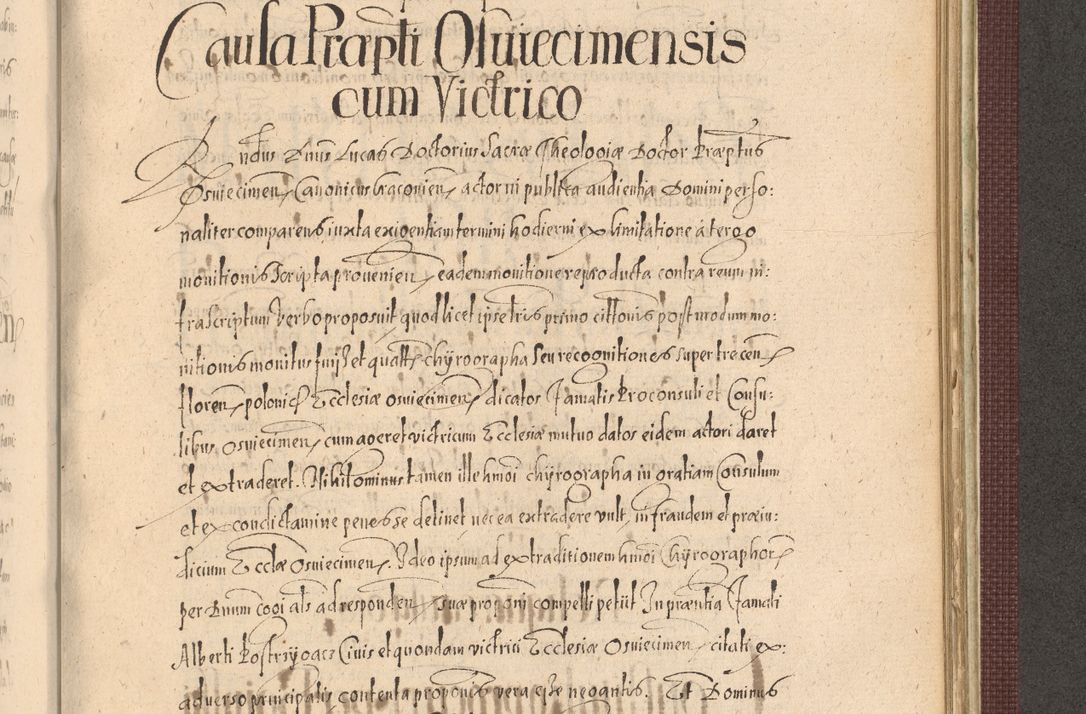 Causa Præpti Osuiecimensis
cum Victrico
Rndus Dnus Lucas Doctorius Sacræ Theologiæ Doctor Præptus
Osuiecimen Canonicus Cracouien actor in publica audientia Domini perso:
naliter comparens iuxta exigentiam termini hodierni ex limitatione à tergo
monitionis scripta prouenien eadem monitione reproducta contra reum in:
frascriptum verbo proposuit quod licet ipse tris primo cittonis postmodum mo:
nitionis monitus fuisset quatts chÿrographa seu recognitiones super trecen
floren polonics Ecclesiæ osuiecimen dicatos Famatis Proconsuli et Consu:
libus osuiecimen cum ageret victricum Ecclesiæ mutuo datos eidem actori daret
et extraderet. Nihilominus tamen ille hmoi chÿrographa in gratiam Consulum
et ex condictamine penes se detinet nec ea extradere vult, in fraudem et præiu:
dicium Ecclæ Osuiecimen. Ideo ipsum ad extraditionem hmoi chÿrographor
per Dnum cogi als ad responden suæ proponi compelli petiit In præntia Famati
Alberti Kostrzÿgacz Ciuis et quondam victrici Ecclesiæ Osuiecimen citati ex:
aduerso principalis contenta proponis vera esse negantis. Et Dominus